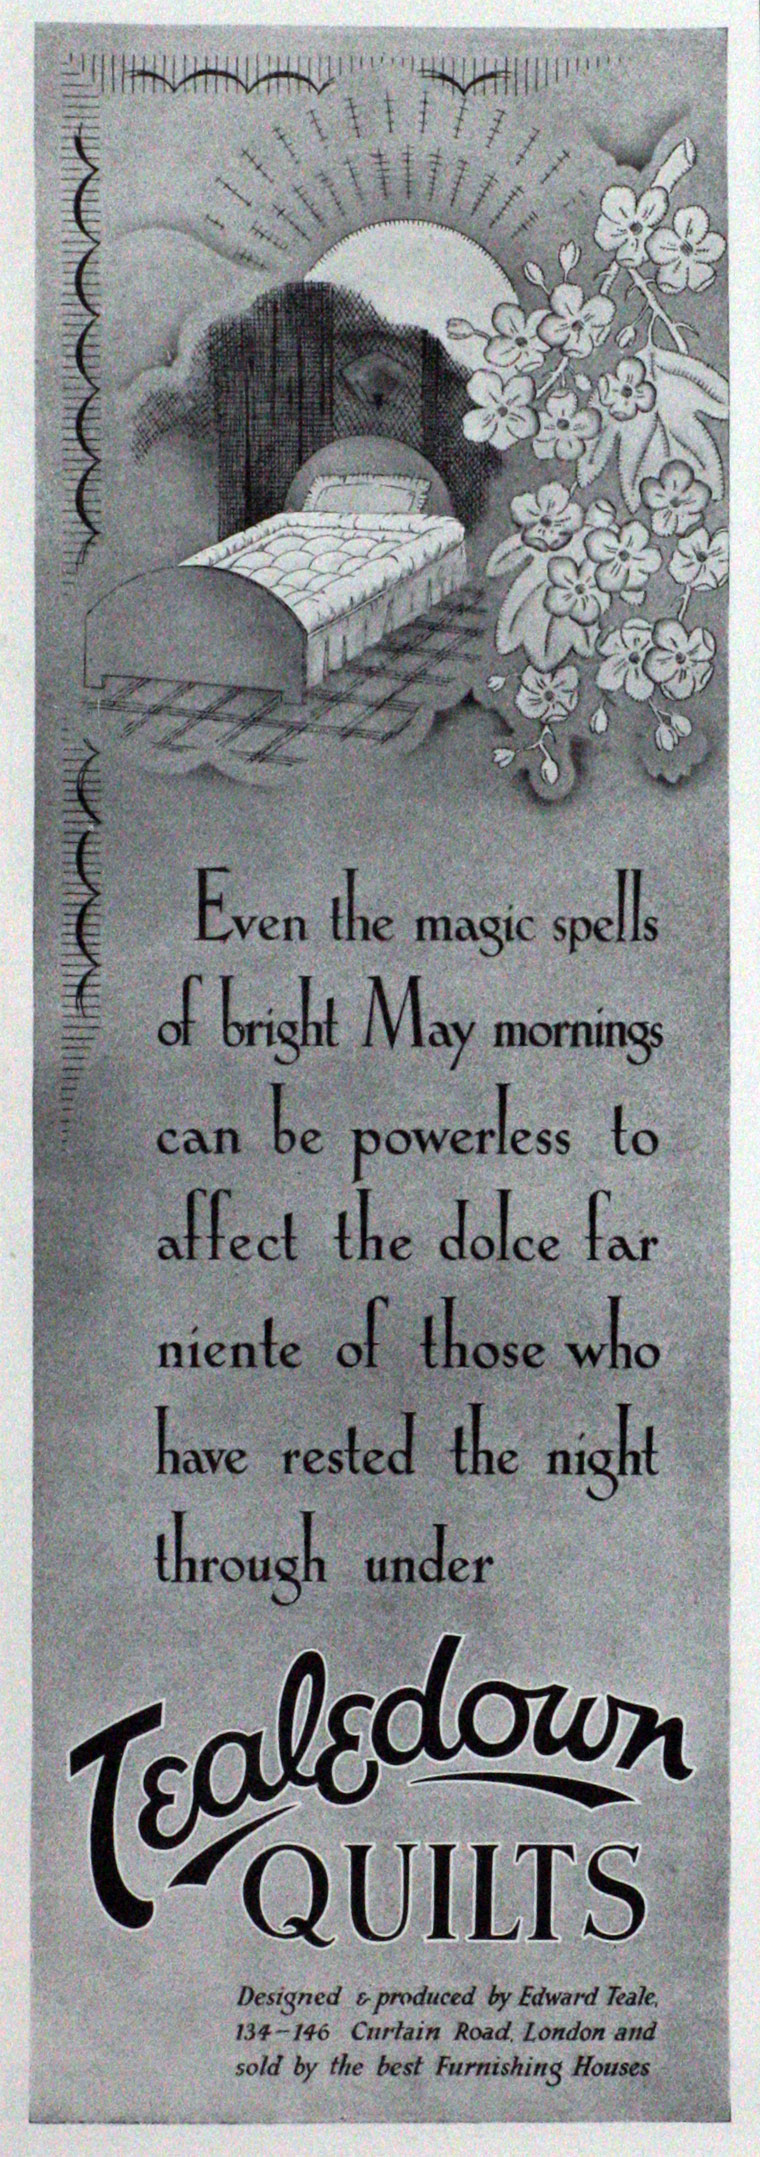 Even the magic spells
of bright May mornings
can be powerless to
affect the dolce far
niente of those who
have rested the night
through under
Tealedown
QUILTS
Designed & produced by Edward Teale,
134-146 Curtain Road, London and
sold by the best Furnishing Houses